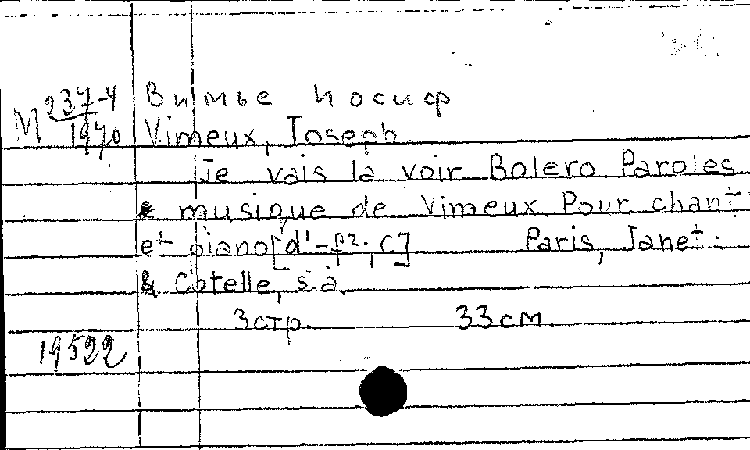 М 237-4/1970
Вимье Иосиф
Vimeux, Joseph
Je vais la voir Bolero Paroles
& musique de Vimeux Pour chant
et piano [d'-f2. C]
Paris, Janet
& Cotelle, s.a.
3 стр. 33 см
19522